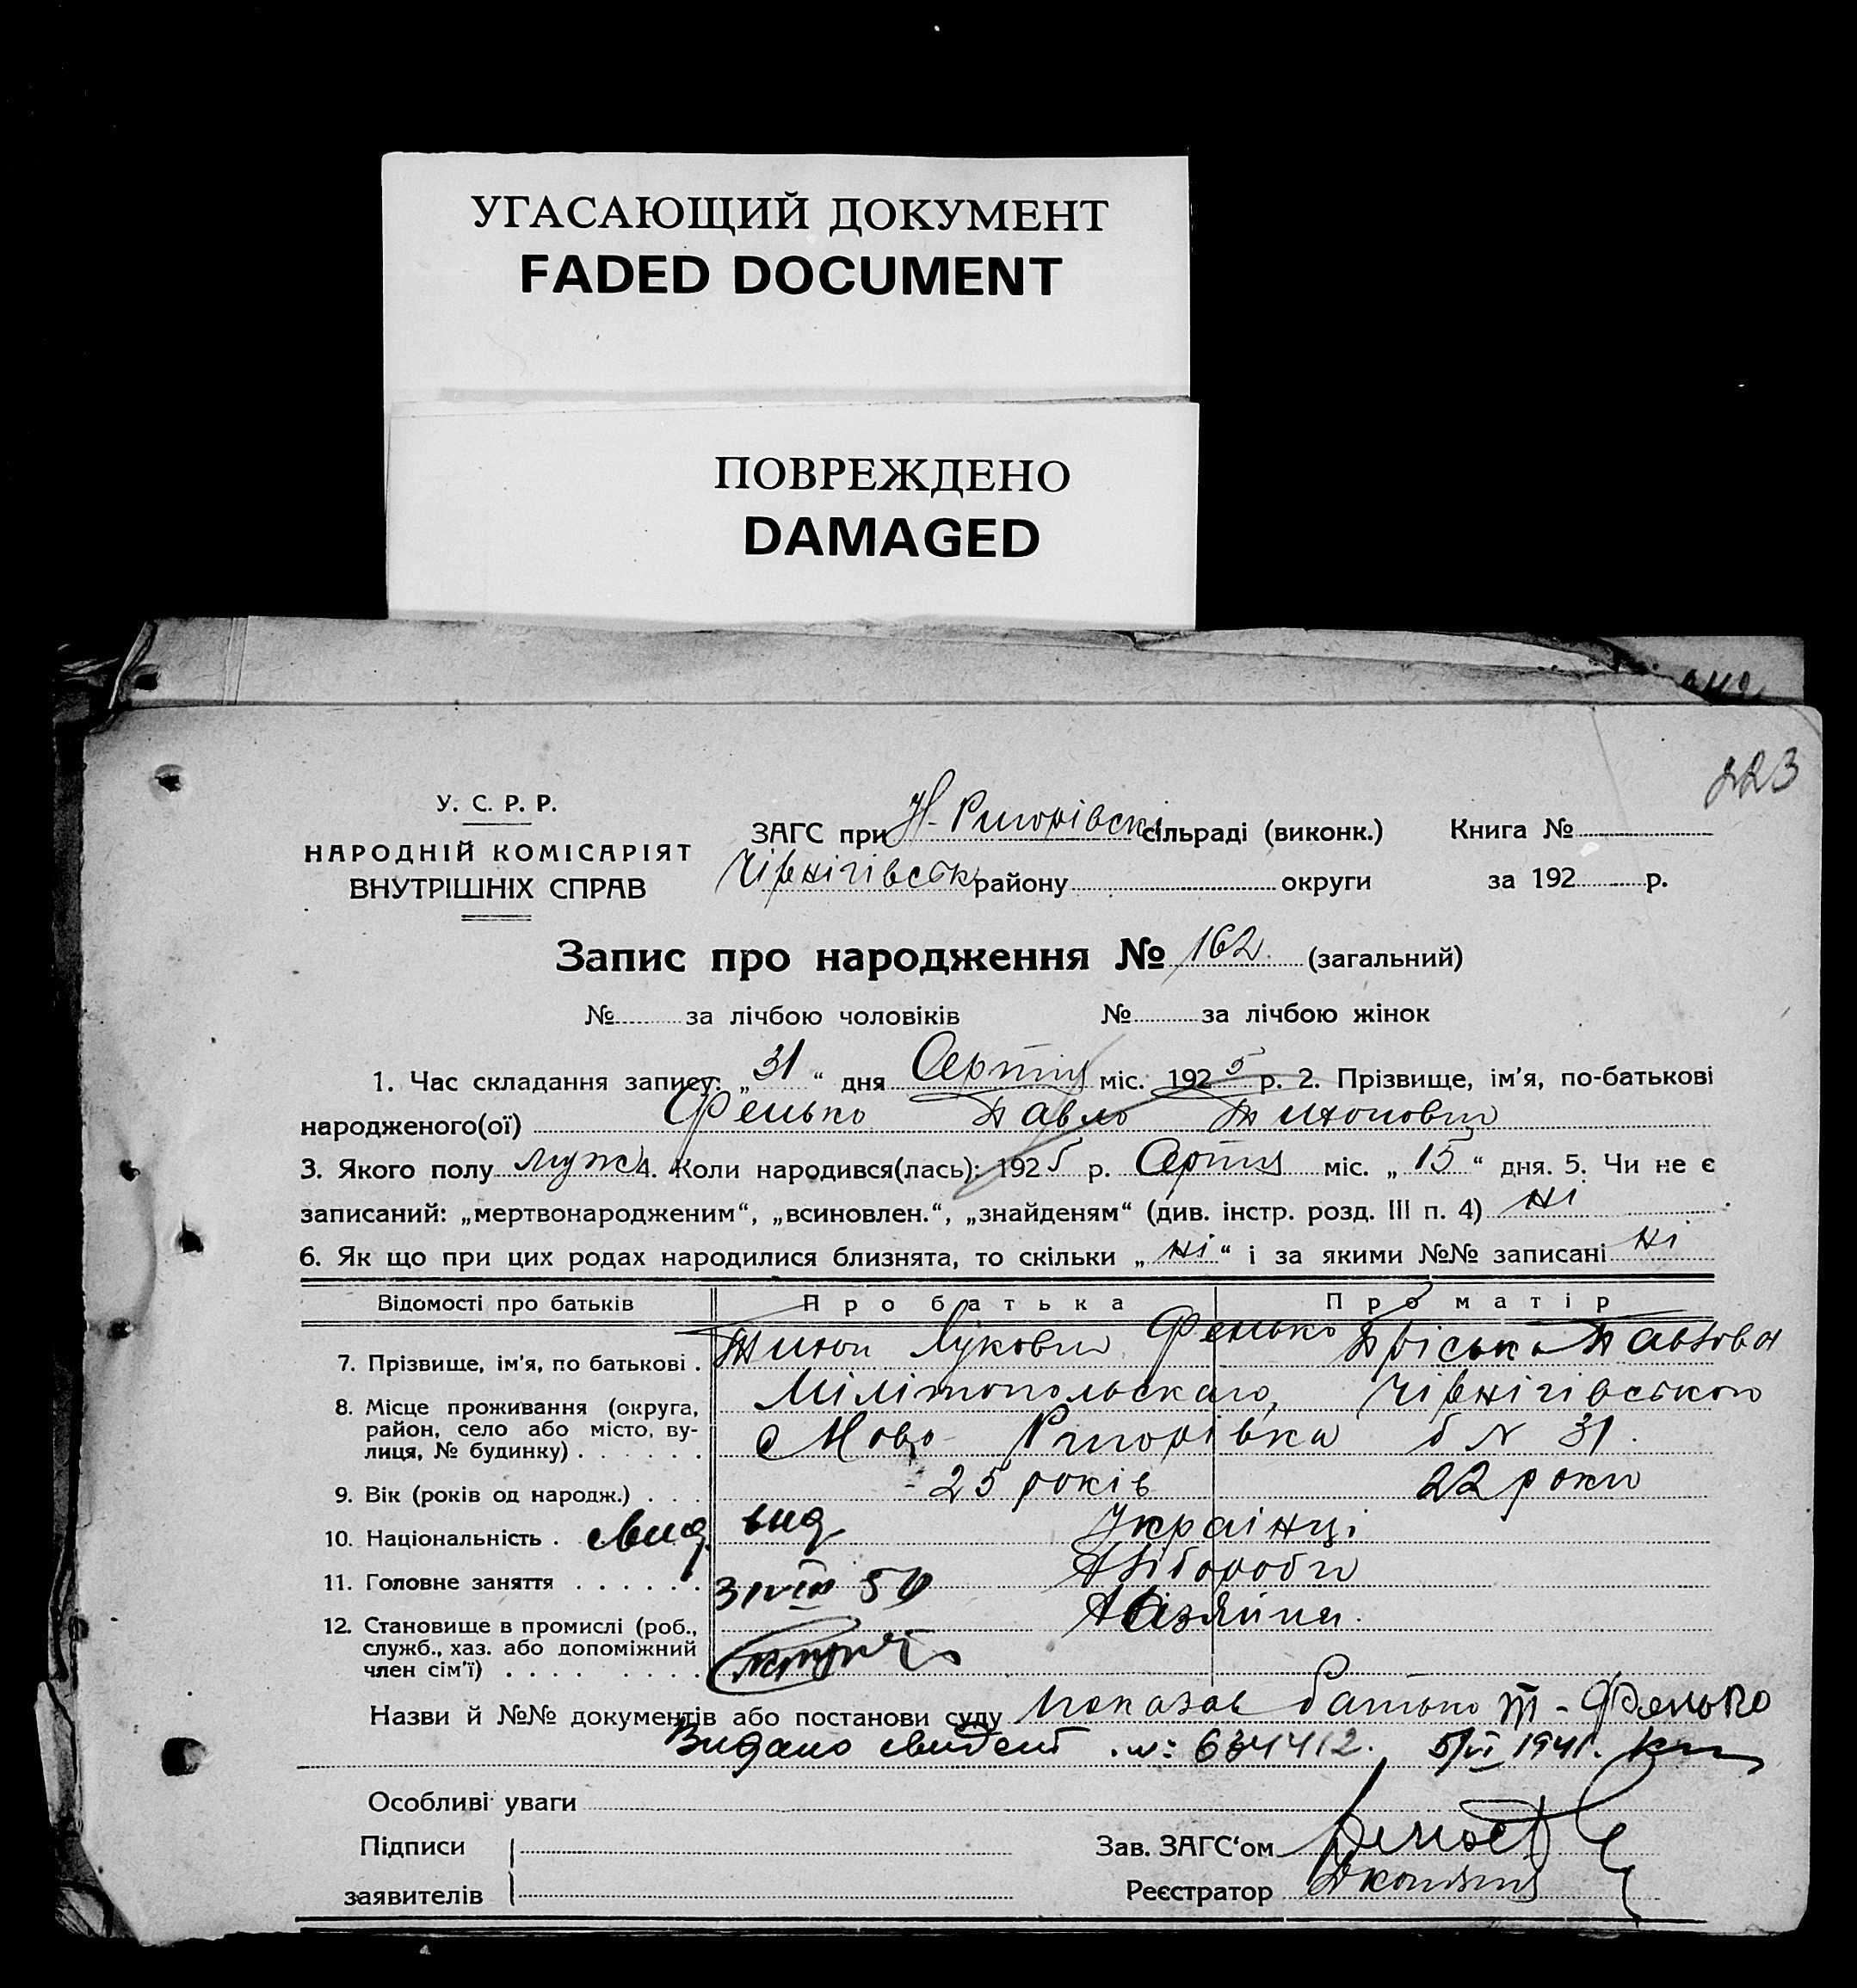 УГАСАЮЩИЙ ДОКУМЕНТ
FADED DOCUMENT
ПОВРЕЖДЕНО
DAMAGED
223
У. С. Р. Р.
НАРОДНІЙ КОМІСАРІЯТ
ВНУТРІШНІХ СПРАВ
ЗАГС при Н-Ригорівскі сільраді (виконк.) Книга №
Чірнігівськ району округи за 192 р.
Запис про народження № 162. (загальний)
№ за лічбою чоловіків № за лічбою жінок
1. Час складання запису: „31“ дня Серпня міс. 1925 р. 2. Прізвище, ім'я, по-батькові
народженого(ої) Фенько Павло Тихонович
3. Якого полу муж 4. Коли народився(лась): 1925 р. Серпня міс. „15“ дня. 5. Чи не є
записаний: „мертвонародженим“, „всиновлен.“, „знайденям“ (див. інстр. розд. III п. 4) Ні
6. Як що при цих родах народилися близнята, то скільки „Ні“ і за якими №№ записані Ні
Відомості про батьків Про батька Про матір
7. Прізвище, ім'я, по батькові . Тихон Лукович Фенько Пріська Павлова
8. Місце проживання (округа, Мілітопольскаго, Чірнігівського
район, село або місто, ву-
лиця, № будинку) . . . . . . с Ново-Ригорівка б N 31.
9. Вік (років од народж.) . . . 25 років 22 роки
10. Національність . свид. вид Українці
11. Головне заняття . . . . . . 31 VIII 50 Хлібороби
12. Становище в промислі (роб., Хазяїни.
служб., хаз. або допоміжний
член сім'ї) . . . . . . . .
Назви й №№ документів або постанови суду показав батько Т-Фенько
Видано свидет. №: 634412. 5/VI 1941.
Особливі уваги
Підписи
заявителів
Зав. ЗАГС'ом
Реєстратор